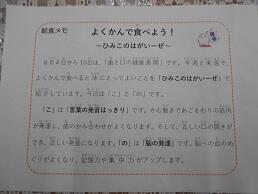 給食メモ
よくかんで食べよう！
～ひみこのはがいーぜ～
6月4日から10日は、「歯と口の健康週間」です。今週と来週で、
よくかんで食べると体にとってよいことを「ひみこのはがいーぜ」で
紹介しています。今日は「こ」と「の」です。
「こ」は「言葉の発音はっきり」です。かむ動きであごまわりの筋肉
が発達し、歯のかみ合わせがよくなります。そして、正しい口の開きが
でき、正しい発音になります。「の」は「脳の発達」です。脳への血のめ
ぐりがよくなり、記憶力や集中力がアップします。